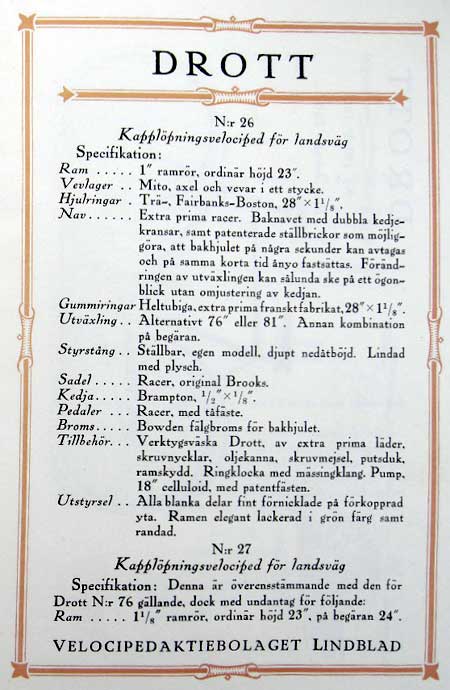 DROTT
N:r 26
Kapplöpningsvelociped för landsväg
Specifikation:
Ram ..... 1" ramrör, ordinär höjd 23".
Vevlager .. Mito, axel och vevar i ett stycke.
Hjulringar . Trä-, Fairbanks-Boston, 28" × 1 1/8".
Nav...... Extra prima racer. Baknavet med dubbla kedje-
kransar, samt patenterade ställbrickor som möjlig-
göra, att bakhjulet på några sekunder kan avtagas
och på samma korta tid ånyo fastsättas. Föränd-
ringen av utväxlingen kan sålunda ske på ett ögon-
blick utan omjustering av kedjan.
Gummiringar Heltubiga, extra prima franskt fabrikat, 28" × 1 1/8".
Utväxling .. Alternativt 76" eller 81". Annan kombination
på begäran.
Styrstång .. Ställbar, egen modell, djupt nedåtböjd. Lindad
med plysch.
Sadel ..... Racer, original Brooks.
Kedja..... Brampton, 1/2" × 1/8".
Pedaler ... Racer, med tåfäste.
Broms..... Bowden fälgbroms för bakhjulet.
Tillbehör... Verktygsväska Drott, av extra prima läder,
skruvnycklar, oljekanna, skruvmejsel, putsduk,
ramskydd. Ringklocka med mässingklang. Pump,
18" celluloid, med patentfästen.
Utstyrsel .. Alla blanka delar fint förnicklade på förkopprad
yta. Ramen elegant lackerad i grön färg samt
randad.
N:r 27
Kapplöpningsvelociped för landsväg
Specifikation: Denna är överensstämmande med den för
Drott N:r 76 gällande, dock med undantag för följande:
Ram ..... 1 1/8" ramrör, ordinär höjd 23", på begäran 24".
VELOCIPEDAKTIEBOLAGET LINDBLAD